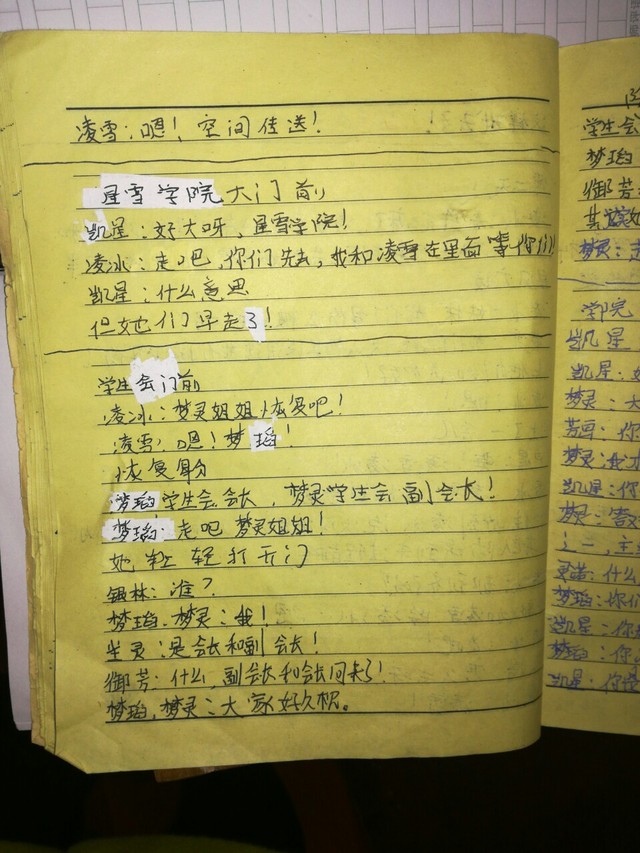 凌雪:嗯!空间传送!
星雪学院大门前
凯星:好大呀,星雪学院!
凌冰:走吧,你们先去,我和凌雪在里面等你们!
凯星:什么意思
但她们早走了!
学生会门前
凌冰:梦灵姐姐恢复吧!
凌雪:嗯!梦瑫!
恢复身分
梦瑫学生会会长,梦灵学生会副会长!
梦瑫:走吧梦灵姐姐!
她 轻打开门
银林:谁?
梦瑫.梦灵:我!
灵:是会长和副会长!
御芳:什么,副会长和会长回来了!
梦瑫,梦灵:大家好久不见。
学生会
梦瑫
御芳
梦灵:
学院
凯星
凯星:
梦灵:大
芳
梦灵:我
凯星:你
梦灵:
之一,主
灵 :什么
梦瑫:你们
凯星:你
梦瑫:你
凯星:你